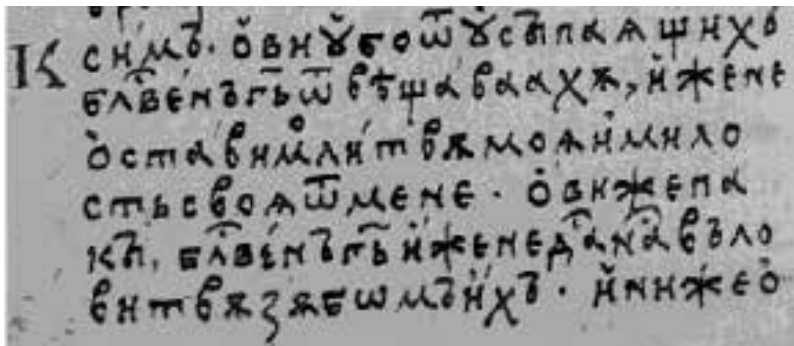 К
симъ· ѻ҆ви ꙋ҆бо ѿ ꙋ҆сыпаѧщихъ
бл҃ве́нъ гь҃ ѿвѣща́ваахѫ, и҆же не
ѻ҆ста́ви мл҇и́твѫ моѧ̀ и҆ мило
сть своѧ ѿ мене · ѻ҆ви же па
кы, бл҃ве́нъ гь҃ и҆же не да́ на́ въ ло
витвѫ зѫбѡмъ и҆хъ · и҆ни же ѻ҆